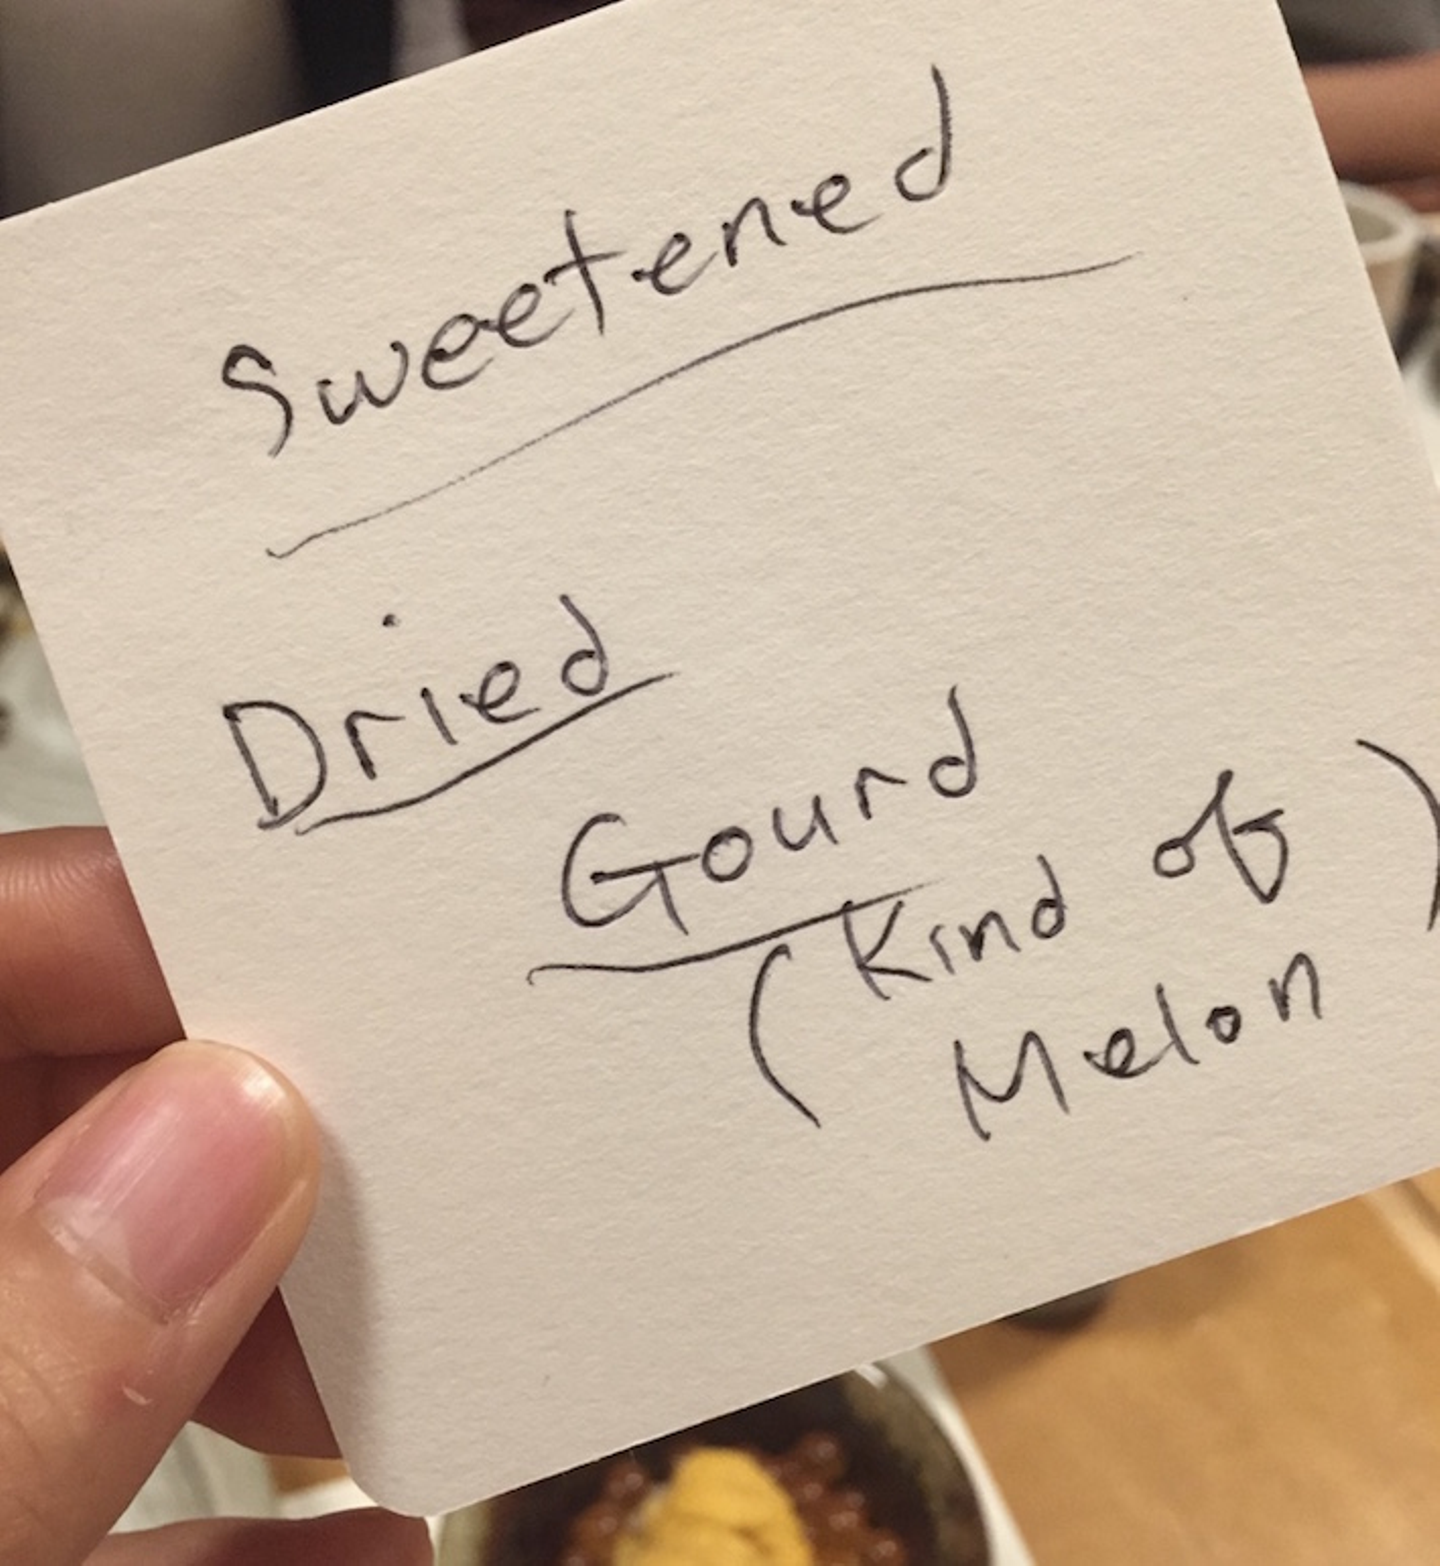 Sweetened
Dried
Gourd
(Kind of
Melon)